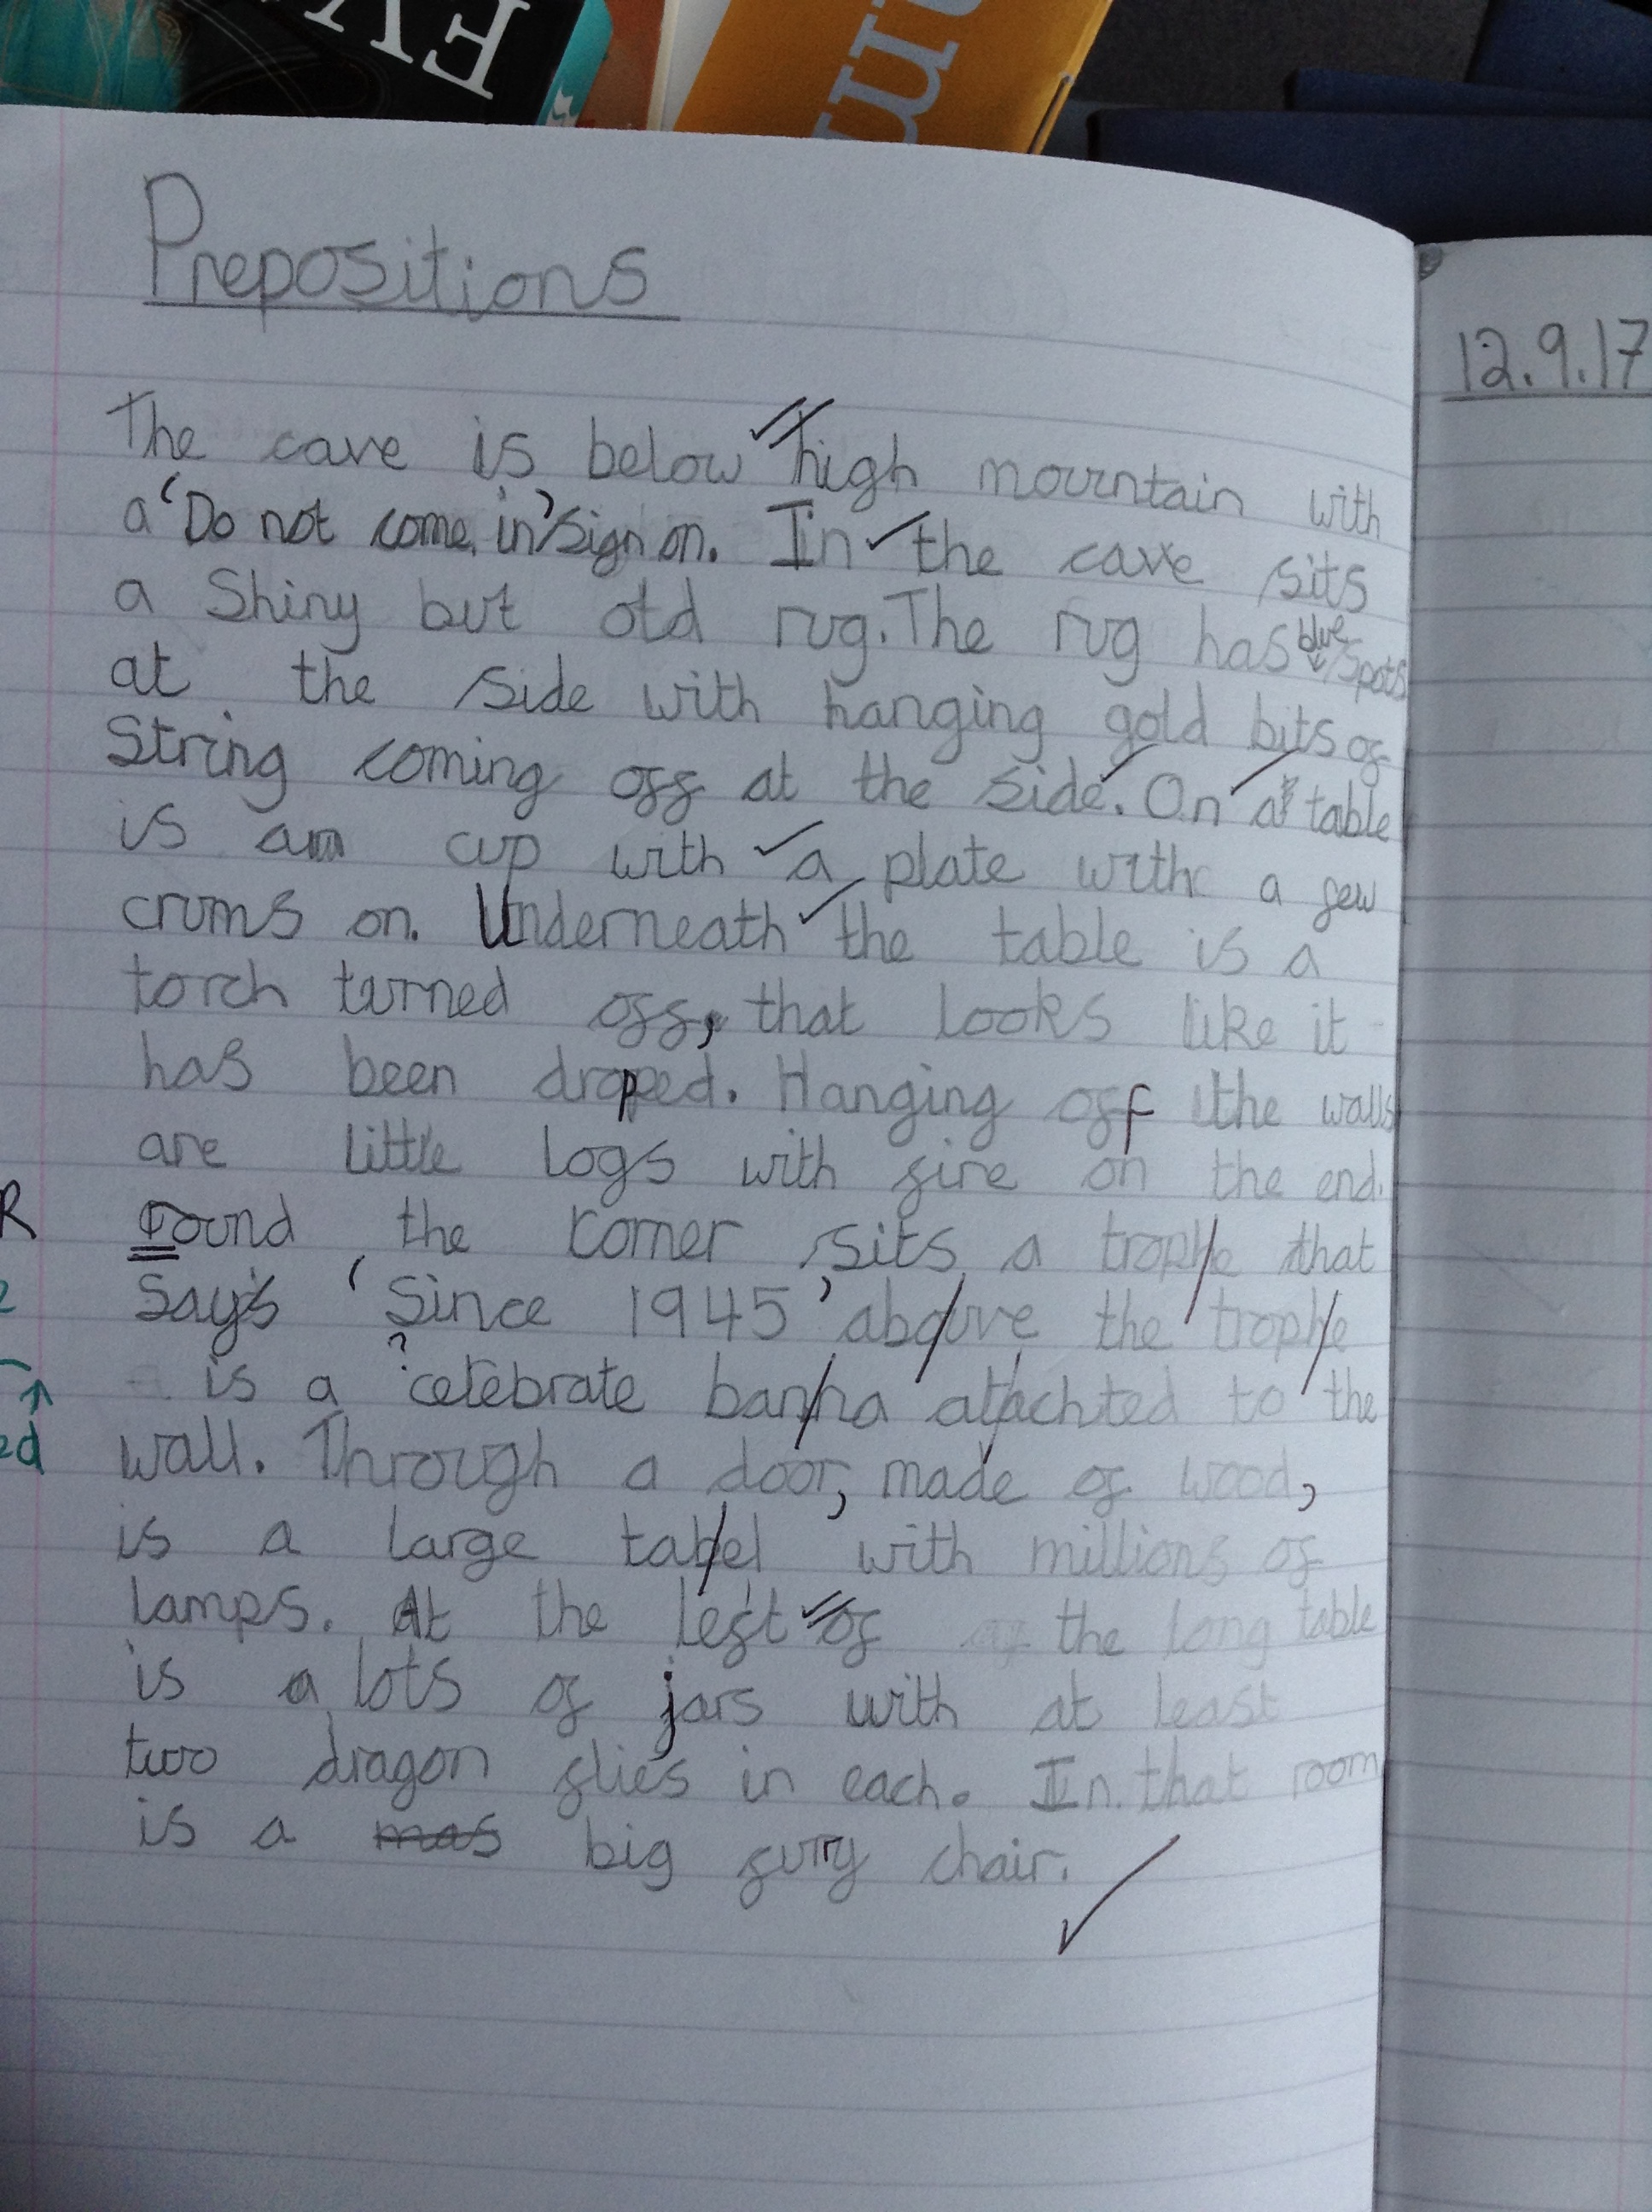 Prepositions
12.9.17
The cave is below high mountain with
a 'Do not come in' sign on. In the cave sits
a Shiny but old rug. The rug has blue spots
at the side with hanging gold bits of
String coming off at the side. On a table
is a cup with a plate with a few
crums on. Underneath the table is a
torch turned off, that looks like it
has been droped. Hanging off the walls
are little logs with fire on the end.
R round the corner sits a trophe that
Say's 'Since 1945' abouve the trophe
is a ? celebrate banna atachted to the
wall. Through a door, made of wood,
is a large tabel with millions of
lamps. At the left of the long table
is a lots of jars with at least
two dragon flies in each. In that room
is a mas big furry chair.